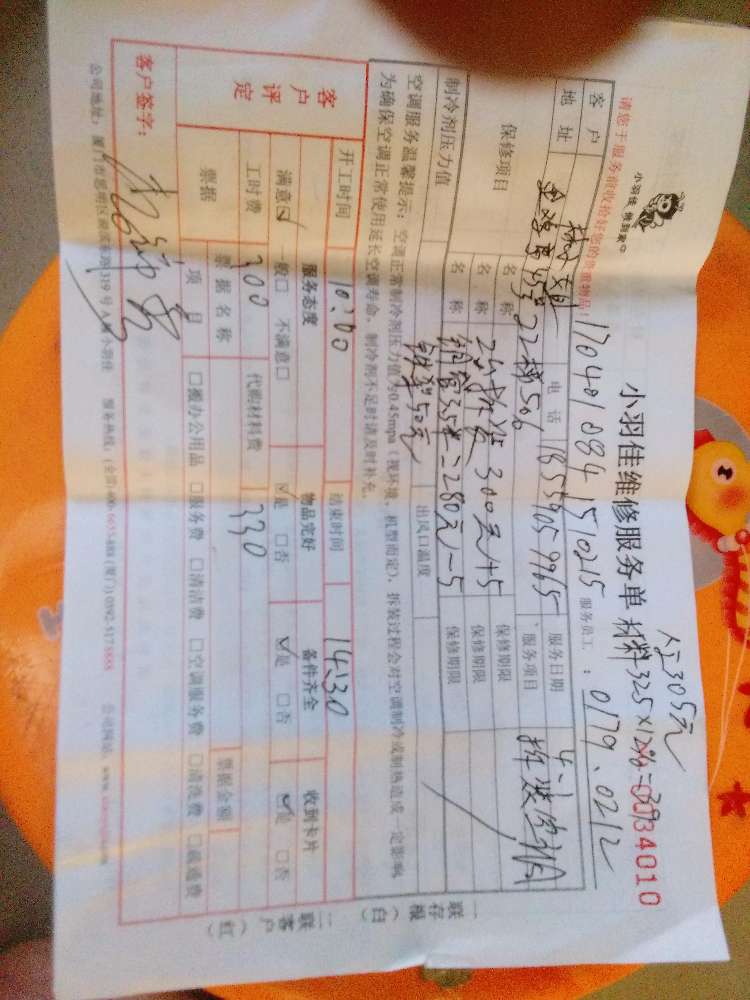 小羽佳 帮到家中
小羽佳维修服务单
全305元
材料325×12%=39
0034010
请您于服务前收拾好您的贵重物品！
1704010841510215
服务员工：0179、0212
客户
电话
18559059965
服务日期
4-2
地址
22楼506
服务项目
拆装空调
保修项目
名称
2台拆装300元+5
保修期限
名称
铜管3.5米=280元-5
保修期限
名称
铁架50元
保修期限
制冷剂压力值
出风口温度
空调服务温馨提示：空调正常制冷剂压力值为0.45mpa（视环境、机型而定），拆装过程会对空调制冷或制热造成一定影响
为确保空调正常使用延长空调寿命。制冷剂不足时请及时补充。
开工时间
10:00
结束时间
14:30
客户评定
服务态度
物品完好
备件齐全
收到卡片
满意☑ 一般□ 不满意□
☑是 □否
☑是 □否
☑是 □否
工时费
300
代购材料费
330
票据
票据名称
票据金额
项目
□搬办公用品 □服务费 □清洁费 □空调服务费 □清洗费 □疏通费
客户签字：
公司地址：厦门市思明区
319号A
小羽佳
服务热线：(全国)400-6655-888 (厦门)0592-5175888
公司网站：www.
一联存根（白）
二联客户（红）